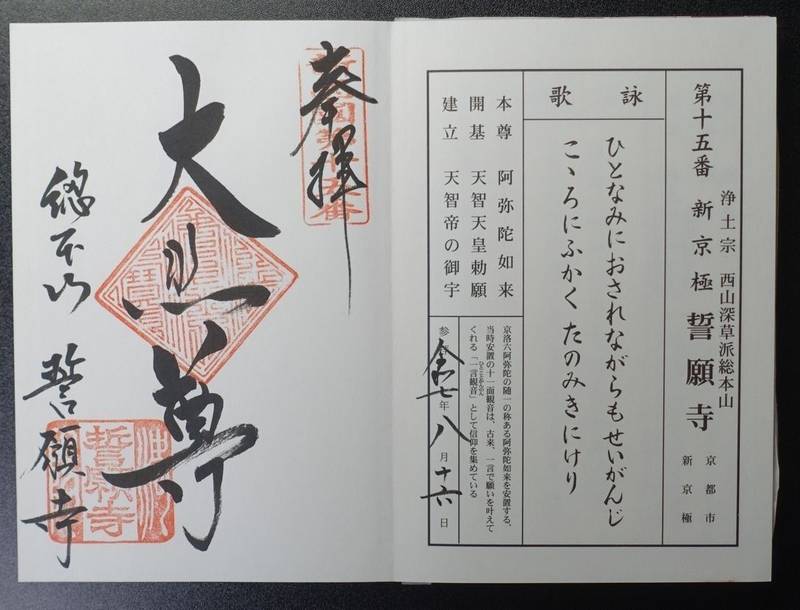 第十五番 新京極 誓願寺
浄土宗 西山深草派総本山
京都市
新京極
詠歌
ひとなみにおされながらもせいがんじ
こゝろにふかく たのみきにけり
本尊 阿弥陀如来
開基 天智天皇勅願
建立 天智帝の御宇
京洛六阿弥陀の随一の称ある阿弥陀如来を安置する、
当時安置の十一面観音は、古来、一言で願いを叶えて
くれる「一言観音」として信仰を集めている
ひとことかんのん
令和七年八月十六日
奉拝
大悲尊
総本山 誓願寺
誓願寺